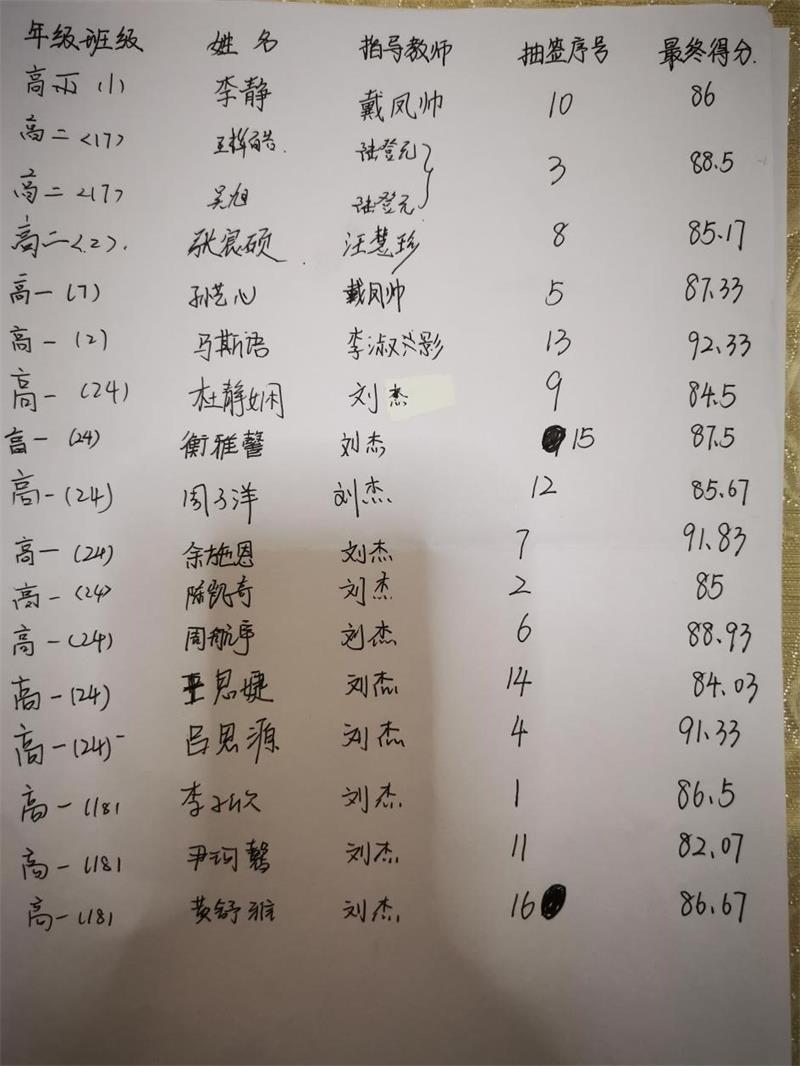 年级班级 姓名 指导教师 抽签序号 最终得分.
高一(1) 李静 戴凤帅 10 86
高二<17> 王梓皓. 陆登元
3 88.5
高二<17> 吴旭 陆登元
高二<2>. 张宸硕 汪慧珍 8 85.17
高一(7) 孙艺心 戴凤帅 5 87.33
高一(2) 马斯语 李淑影 13 92.33
高一(24) 杜静娴 刘杰 9 84.5
高一(24) 衡雅馨 刘杰 15 87.5
高一(24) 周子洋 刘杰 12 85.67
高一(24) 余施恩 刘杰 7 91.83
高一(24) 陈凯奇 刘杰 2 85
高一(24) 周航宇 刘杰 6 88.93
高一(24) 王思婕 刘杰 14 84.03
高一(24) 吕思源 刘杰 4 91.33
高一(18) 李子欣 刘杰 1 86.5
高一(18) 尹珂馨 刘杰 11 82.07
高一(18) 黄舒雅 刘杰 16 86.67